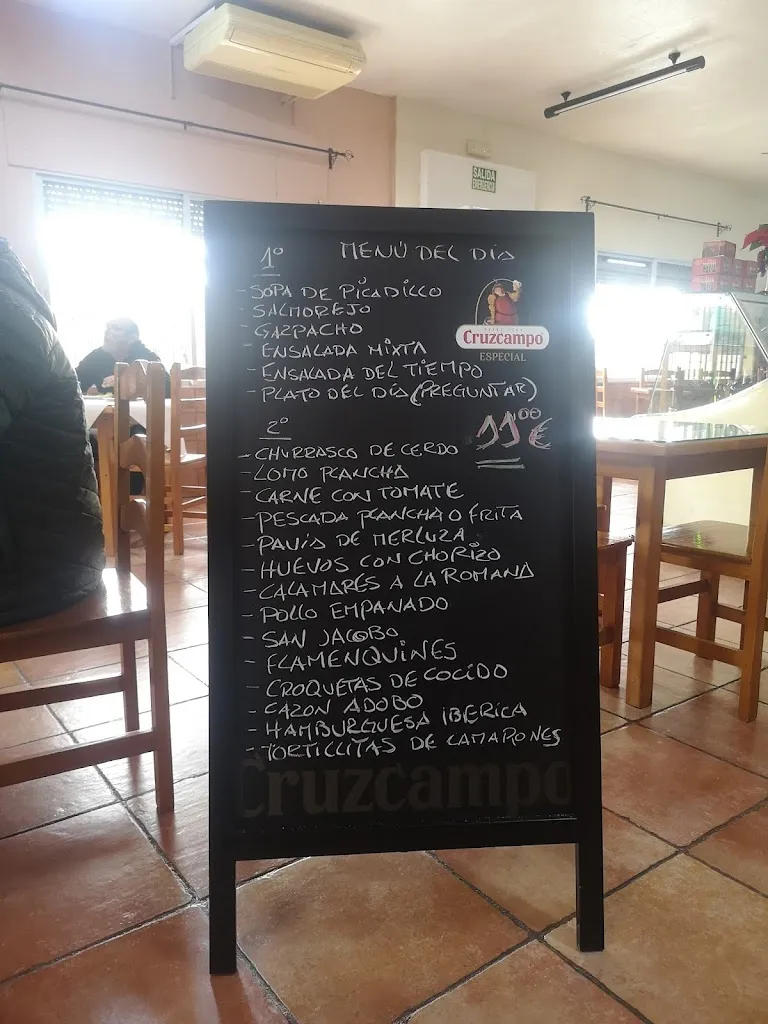 SALIDA
EMERGENCIA
1º MENÚ DEL DÍA
- SOPA DE PICADILLO
- SALMOREJO
- GAZPACHO
- ENSALADA MIXTA
- ENSALADA DEL TIEMPO
- PLATO DEL DÍA (PREGUNTAR)
Cruzcampo
ESPECIAL
11'00 €
2º
- CHURRASCO DE CERDO
- LOMO PLANCHA
- CARNE CON TOMATE
- PESCADA PLANCHA O FRITA
- PAVÍA DE MERLUZA
- HUEVOS CON CHORIZO
- CALAMARES A LA ROMANA
- POLLO EMPANADO
- SAN JACOBO
- FLAMENQUINES
- CROQUETAS DE COCIDO
- CAZON ADOBO
- HAMBURGUESA IBERICA
- TORTILLITAS DE CAMARONES
Cruzcampo